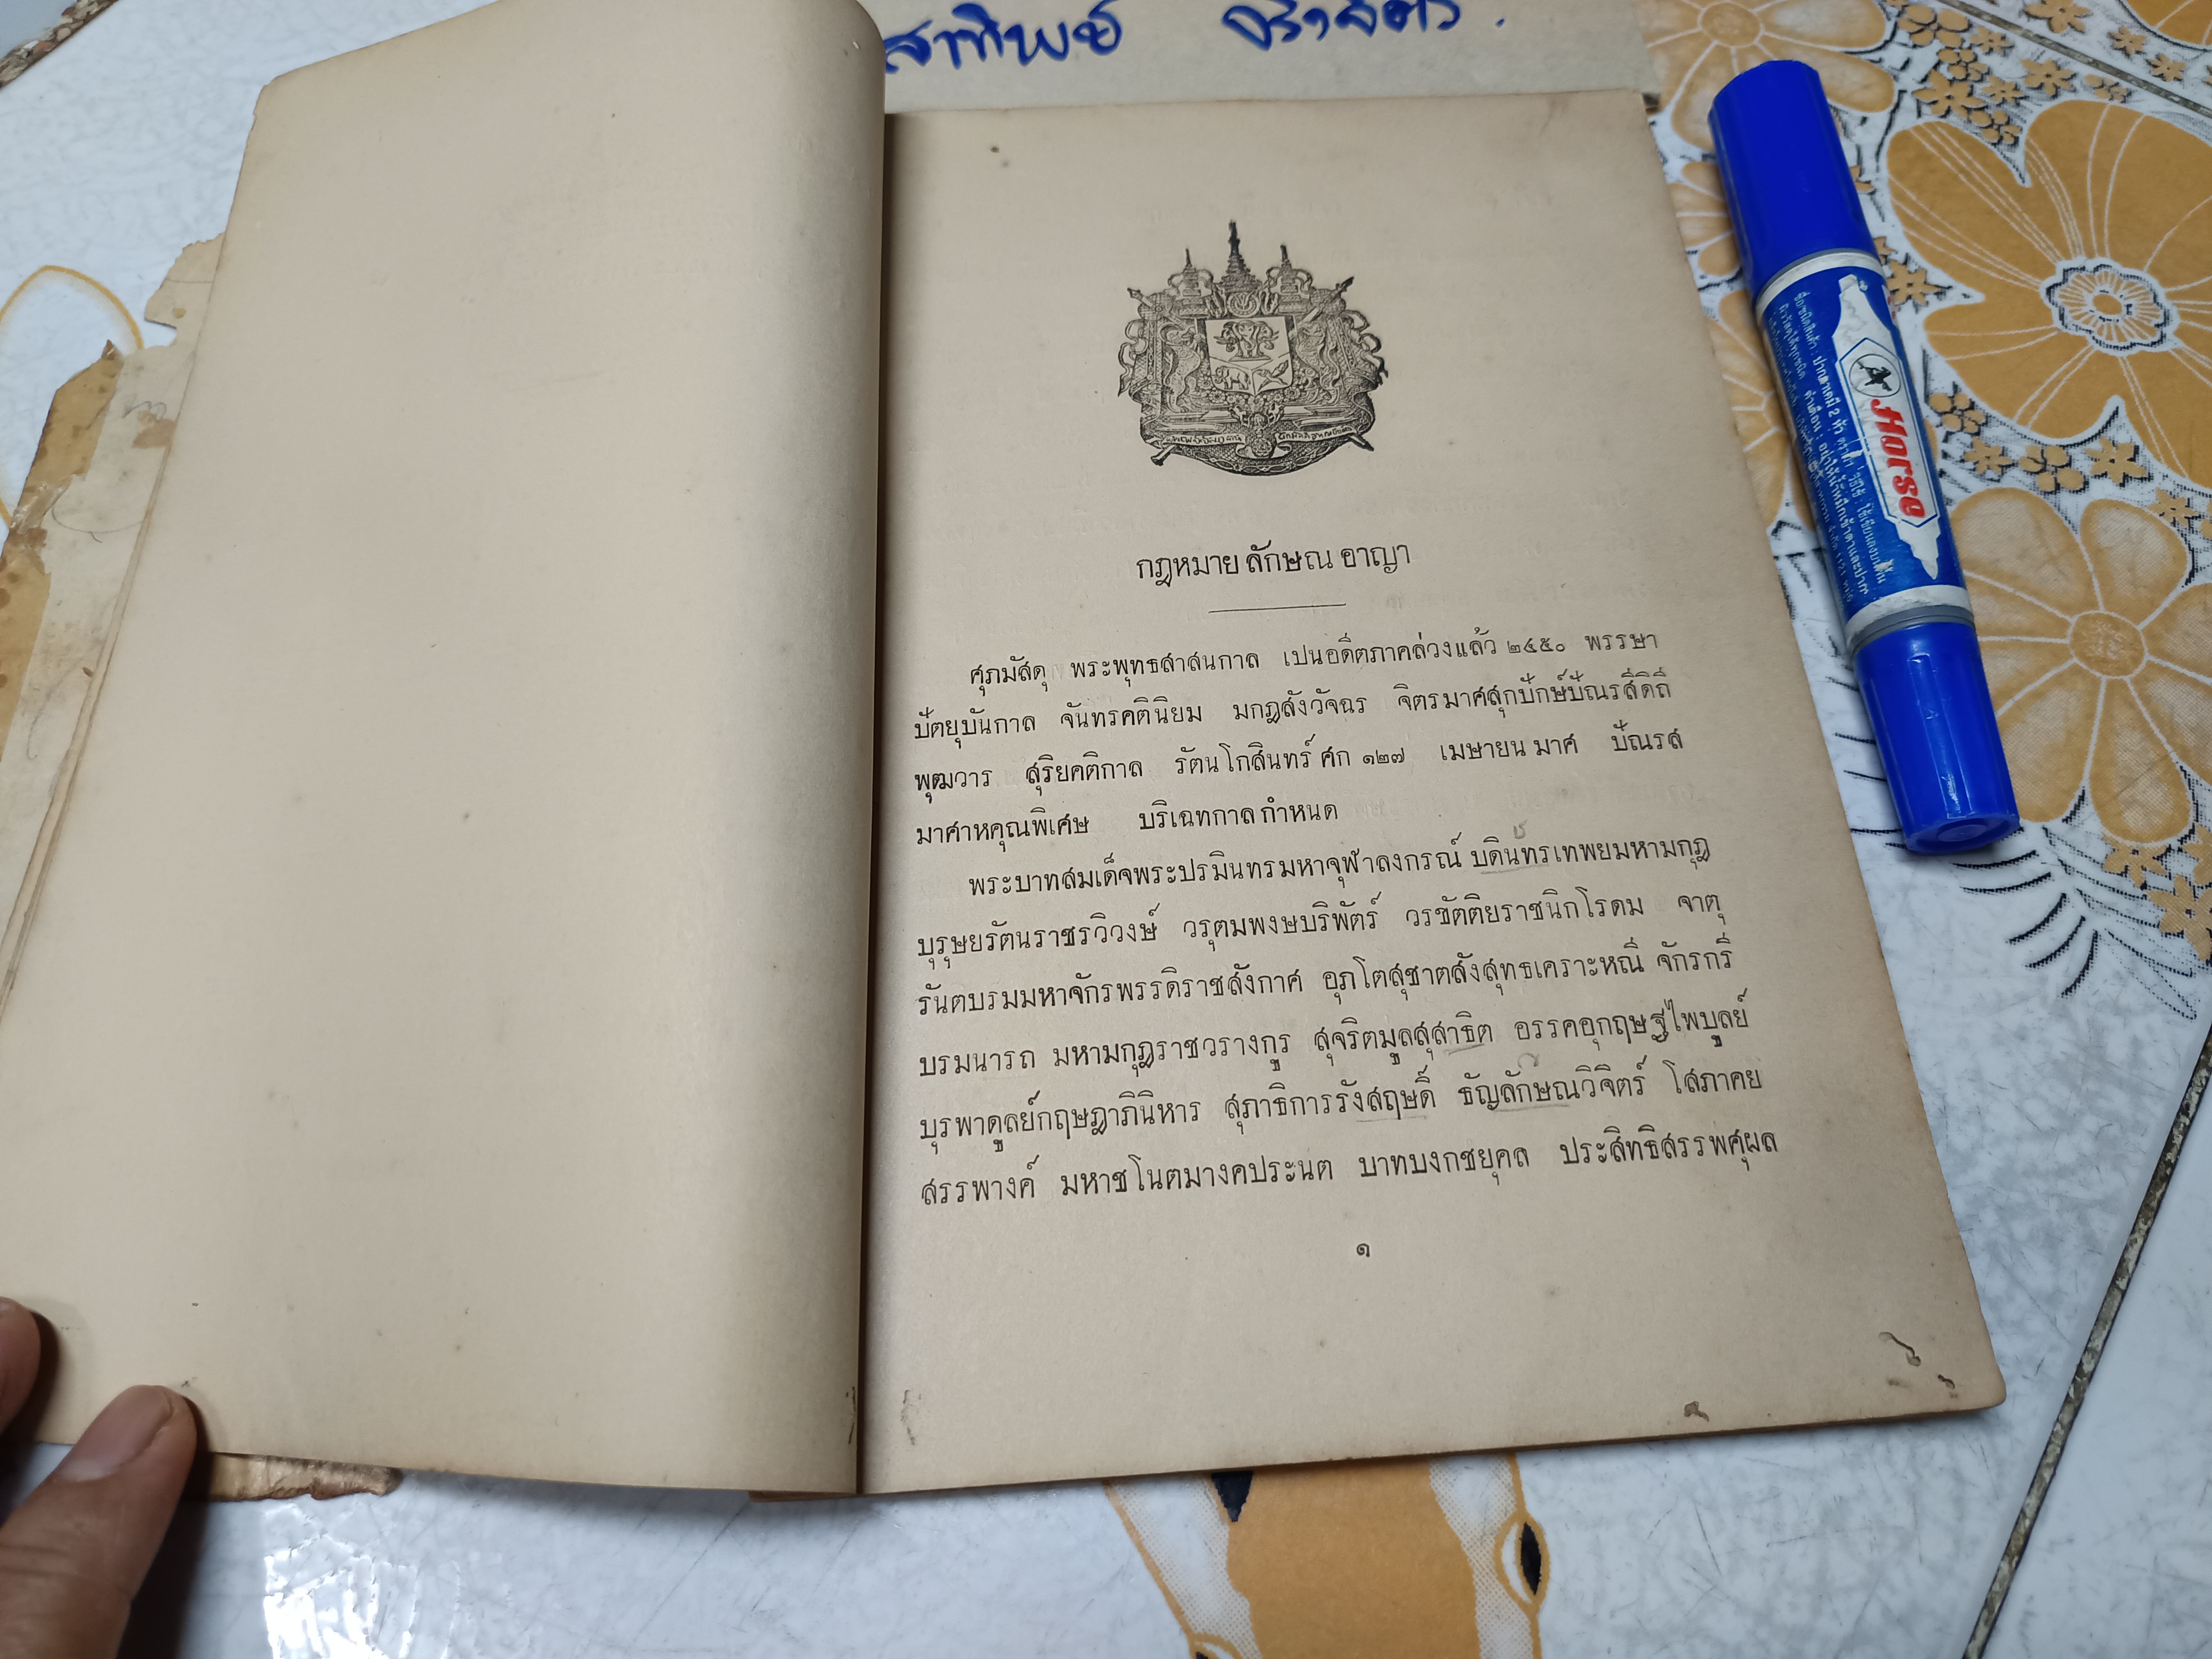 กฎหมาย ลักษณ อาญา
ศุภมัสดุ พระพุทธสาสนกาล เปนอดีตภาคล่วงแล้ว ๒๔๕๐ พรรษา
ปัตยุบันกาล จันทรคตินิยม มกฎสังวัจฉร จิตรมาศสุกปักษ์ปัณรสีดิถี
พุฒวาร สุริยคติกาล รัตนโกสินทร์ ศก ๑๒๗ เมษายน มาศ ปัณรส
มาศาหคุณพิเศษ บริเฉทกาล กำหนด
พระบาทสมเด็จพระปรมินทรมหาจุฬาลงกรณ์ บดินทรเทพยมหามกุฎ
บุรุษยรัตนราชรวิวงษ์ วรุตมพงษบริพัตร์ วรขัตติยราชนิกโรดม จาตุ
รันตบรมมหาจักรพรรดิราชสังกาศ อุภโตสุชาตสังสุทธเคราะหณี จักรกรี
บรมนารถ มหามกุฎราชวรางกูร สุจริตมูลสุสาธิต อรรคอุกฤษฐไพบูลย์
บุรพาดูลย์กฤษฎาภินิหาร สุภาธิการรังสฤษดิ์ ธัญลักษณวิจิตร์ โสภาคย
สรรพางค์ มหาชโนตมางคประนต บาทบงกชยุคล ประสิทธิสรรพศุผล
๑
Horse